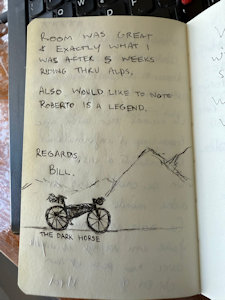 ROOM WAS GREAT
& EXACTLY WHAT I
WAS AFTER 5 WEEKS
RIDING THRU ALPS.
ALSO WOULD LIKE TO NOTE
ROBERTO IS A LEGEND.
REGARDS,
BILL.
THE DARK HORSE